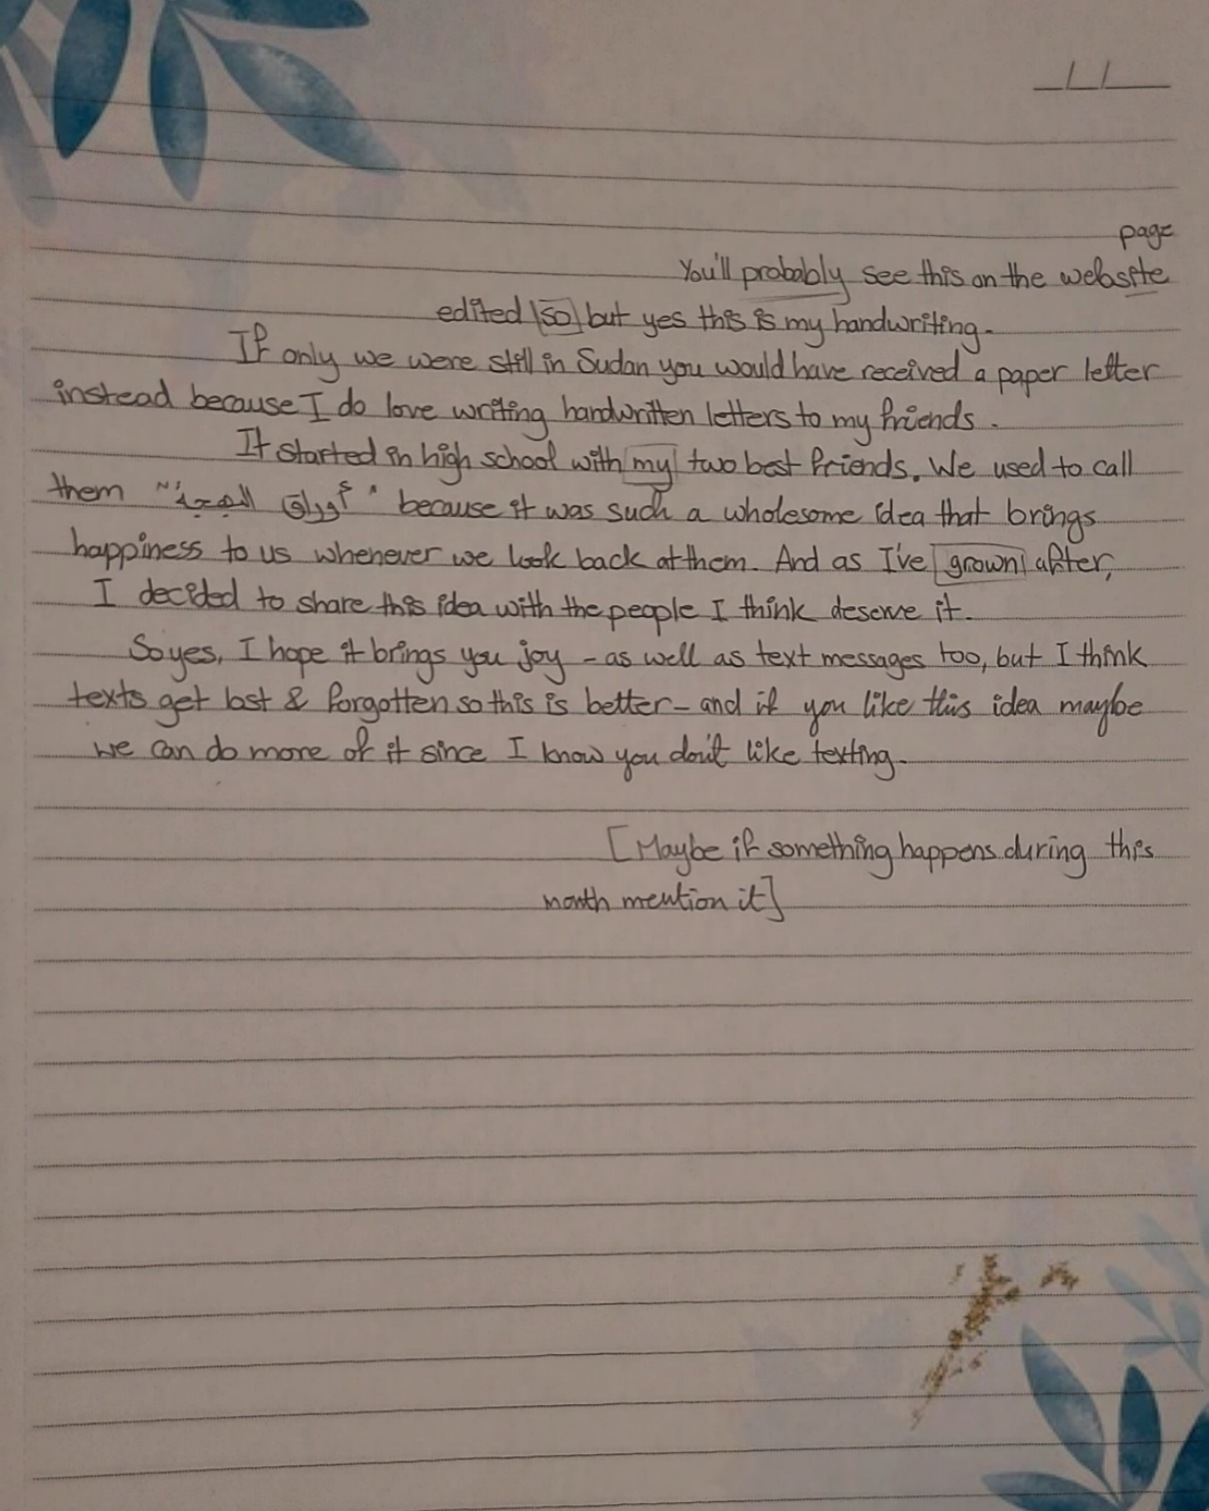 page
You'll probably see this on the website
edited so but yes this is my handwriting.
If only we were still in Sudan you would have received a paper letter
instead because I do love writing handwritten letters to my friends.
It started in high school with my two best friends. We used to call
them "أوراق المحبة" because it was such a wholesome idea that brings
happiness to us whenever we look back at them. And as I've grown after,
I decided to share this idea with the people I think deserve it.
So yes, I hope it brings you joy - as well as text messages too, but I think
texts get lost & forgotten so this is better - and if you like this idea maybe
we can do more of it since I know you don't like texting.
[Maybe if something happens during this
month mention it]